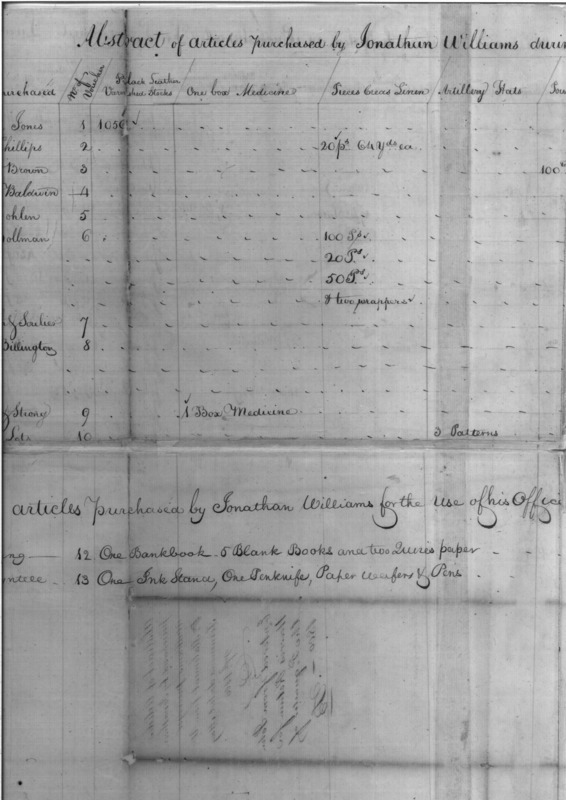 Abstract of articles purchased by Jonathan Williams durin
urchased No of Voucher Black Leather Varnished Stocks One box Medicine Pieces Creas Linen Artillery Hats
Jones 1 1050
hillips 2 20 ps 64 Yds ea
Brown 3 100
Baldwin 4
ohlen 5
ollman 6 100 Ps
20 Ps
50 Ps
& two wrappers
& Soulier 7
Billington 8
& Strong 9 1 Box Medicine
10 3 Patterns
articles purchased by Jonathan Williams for the Use of his Office
ng 12 One Bankbook 5 Blank Books and two Quires paper
ntee 13 One Ink Stand, One Penknife, Paper Wafers & Pens